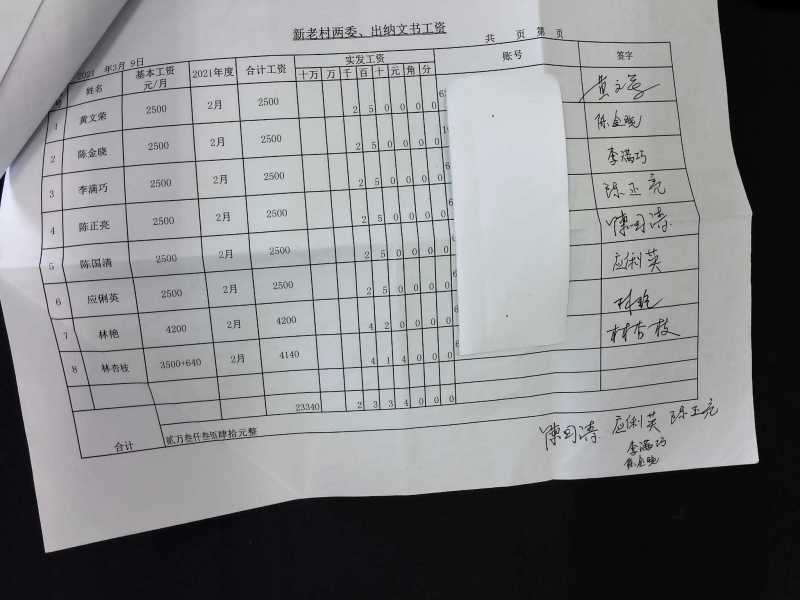 新老村两委、出纳文书工资
2021 年3月 9日 共 页 第 页
号 姓名 基本工资 元/月 2021年度 合计工资 实发工资 账号 签字
十万 万 千 百 十 元 角 分
1 黄文荣 2500 2月 2500 2 5 0 0 0 0 黄文荣
2 陈金晓 2500 2月 2500 2 5 0 0 0 0 陈金晓
3 李满巧 2500 2月 2500 2 5 0 0 0 0 李满巧
4 陈正亮 2500 2月 2500 2 5 0 0 0 0 陈正亮
5 陈国清 2500 2月 2500 2 5 0 0 0 0 陳国清
6 应俐英 2500 2月 2500 2 5 0 0 0 0 应俐英
7 林艳 4200 2月 4200 4 2 0 0 0 0 林艳
8 林杏枝 3500+640 2月 4140 4 1 4 0 0 0 林杏枝
23340 2 3 3 4 0 0 0
合计 贰万叁仟叁佰肆拾元整
陳国清 应俐英 陈正亮
李满巧
陈金晓